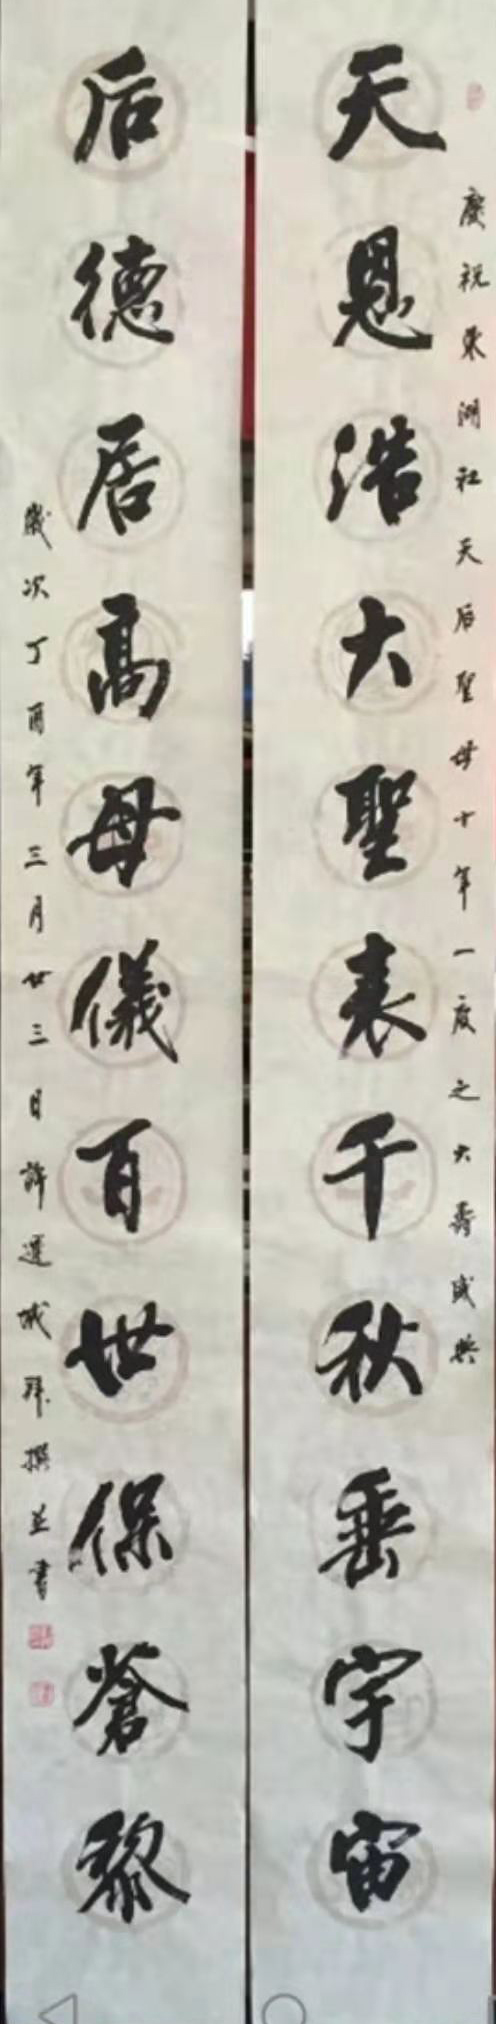 慶祝東湖社天后聖母十年一度之大壽盛典
天恩浩大聖表千秋垂宇宙
后德居高母儀百世保蒼黎
歲次丁酉年三月廿三日許選成拜撰並書